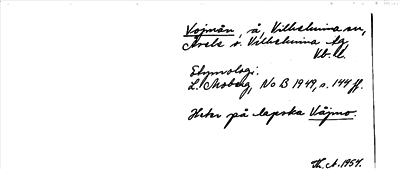 Vojmån, å, Vilhelmina sn,
Åsele o. Vilhelmina tg,
Vb. l.
Etymologi:
L. Moberg, No B 1949, s. 144 ff.
Heter på lapska Våjmo.
Th. A. 1954.